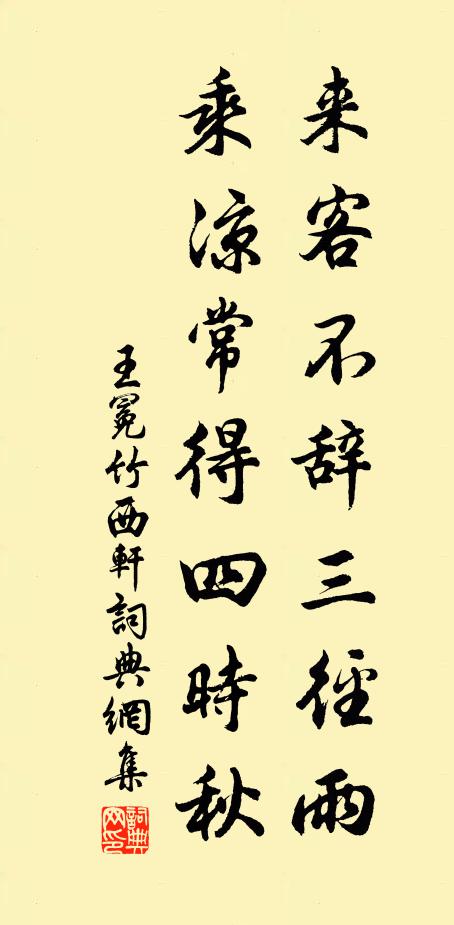 来客不辞三径雨
乘凉常得四時秋
王冕竹西軒詞典網集
詞典网印